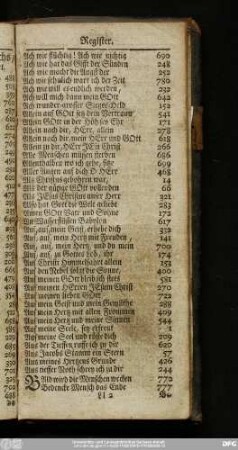 Register.
Ach wie flüchtig! Ach wie nichtig 690
Ach wie hat das Gifft der Sünden 248
Ach wie macht der Angst der 252
Ach wie sehnlich wart ich der Zeit 780
Ach wie will es endlich werden, 232
Ach will mich dann mein GOtt 642
Ach wunder-grosser Sieges-Held 152
Allein auf GOtt setz dein Vertrauen 541
Allein GOtt in der Höh sey Ehr 171
Allein nach dir, HErr, allein 278
Allein nach dir, mein HErr und GOtt 618
Allein zu dir, HErr JEsu Christ 266
Alle Menschen müssen sterben 686
Allenthalben wo ich gehe, sitze 699
Aller Augen auf dich O HErr 463
Als Christus gebohren war, 14
Als der gütige GOtt vollenden 66
Als JEsus Christus unser Herr 321
Also hat Gott die Welt geliebt 283
Amen GOtt Vatr und Sohne 172
An Wasserflüssen Babylon 617
Auf, auf mein Geist, erhebe dich 332
Auf, auf, mein Hertz mit Freuden, 141
Auf, auf, mein Hertz, und du mein 709
Auf, auf, zu Gottes Lob, ihr 174
Auf Christi Himmelfahrt allein 153
Auf den Nebel folgt die Sonne, 400
Auf meinen GOtt bleib ich stets 581
Auf meinen HErren JEsum Christ 270
Auf meinen lieben GOtt 722
Auf mein Geist und mein Gemüthe 288
Auf mein Hertz mit allen Frommen 409
Auf mein Hertz und meine Sinnen 544
Auf meine Seele, sey erfreut 1
Auf meine Seel und rüste dich 209
Aus der Tieffen ruffe ich zu dir 620
Aus Jacobs Stamm ein Stern 57
Aus meines Hertzens Grunde 426
Aus tieffer Noth schrey ich zu dir 244
Bald wird die Menschen wecken 772
Bedencke Mensch das Ende 777
Ll 2